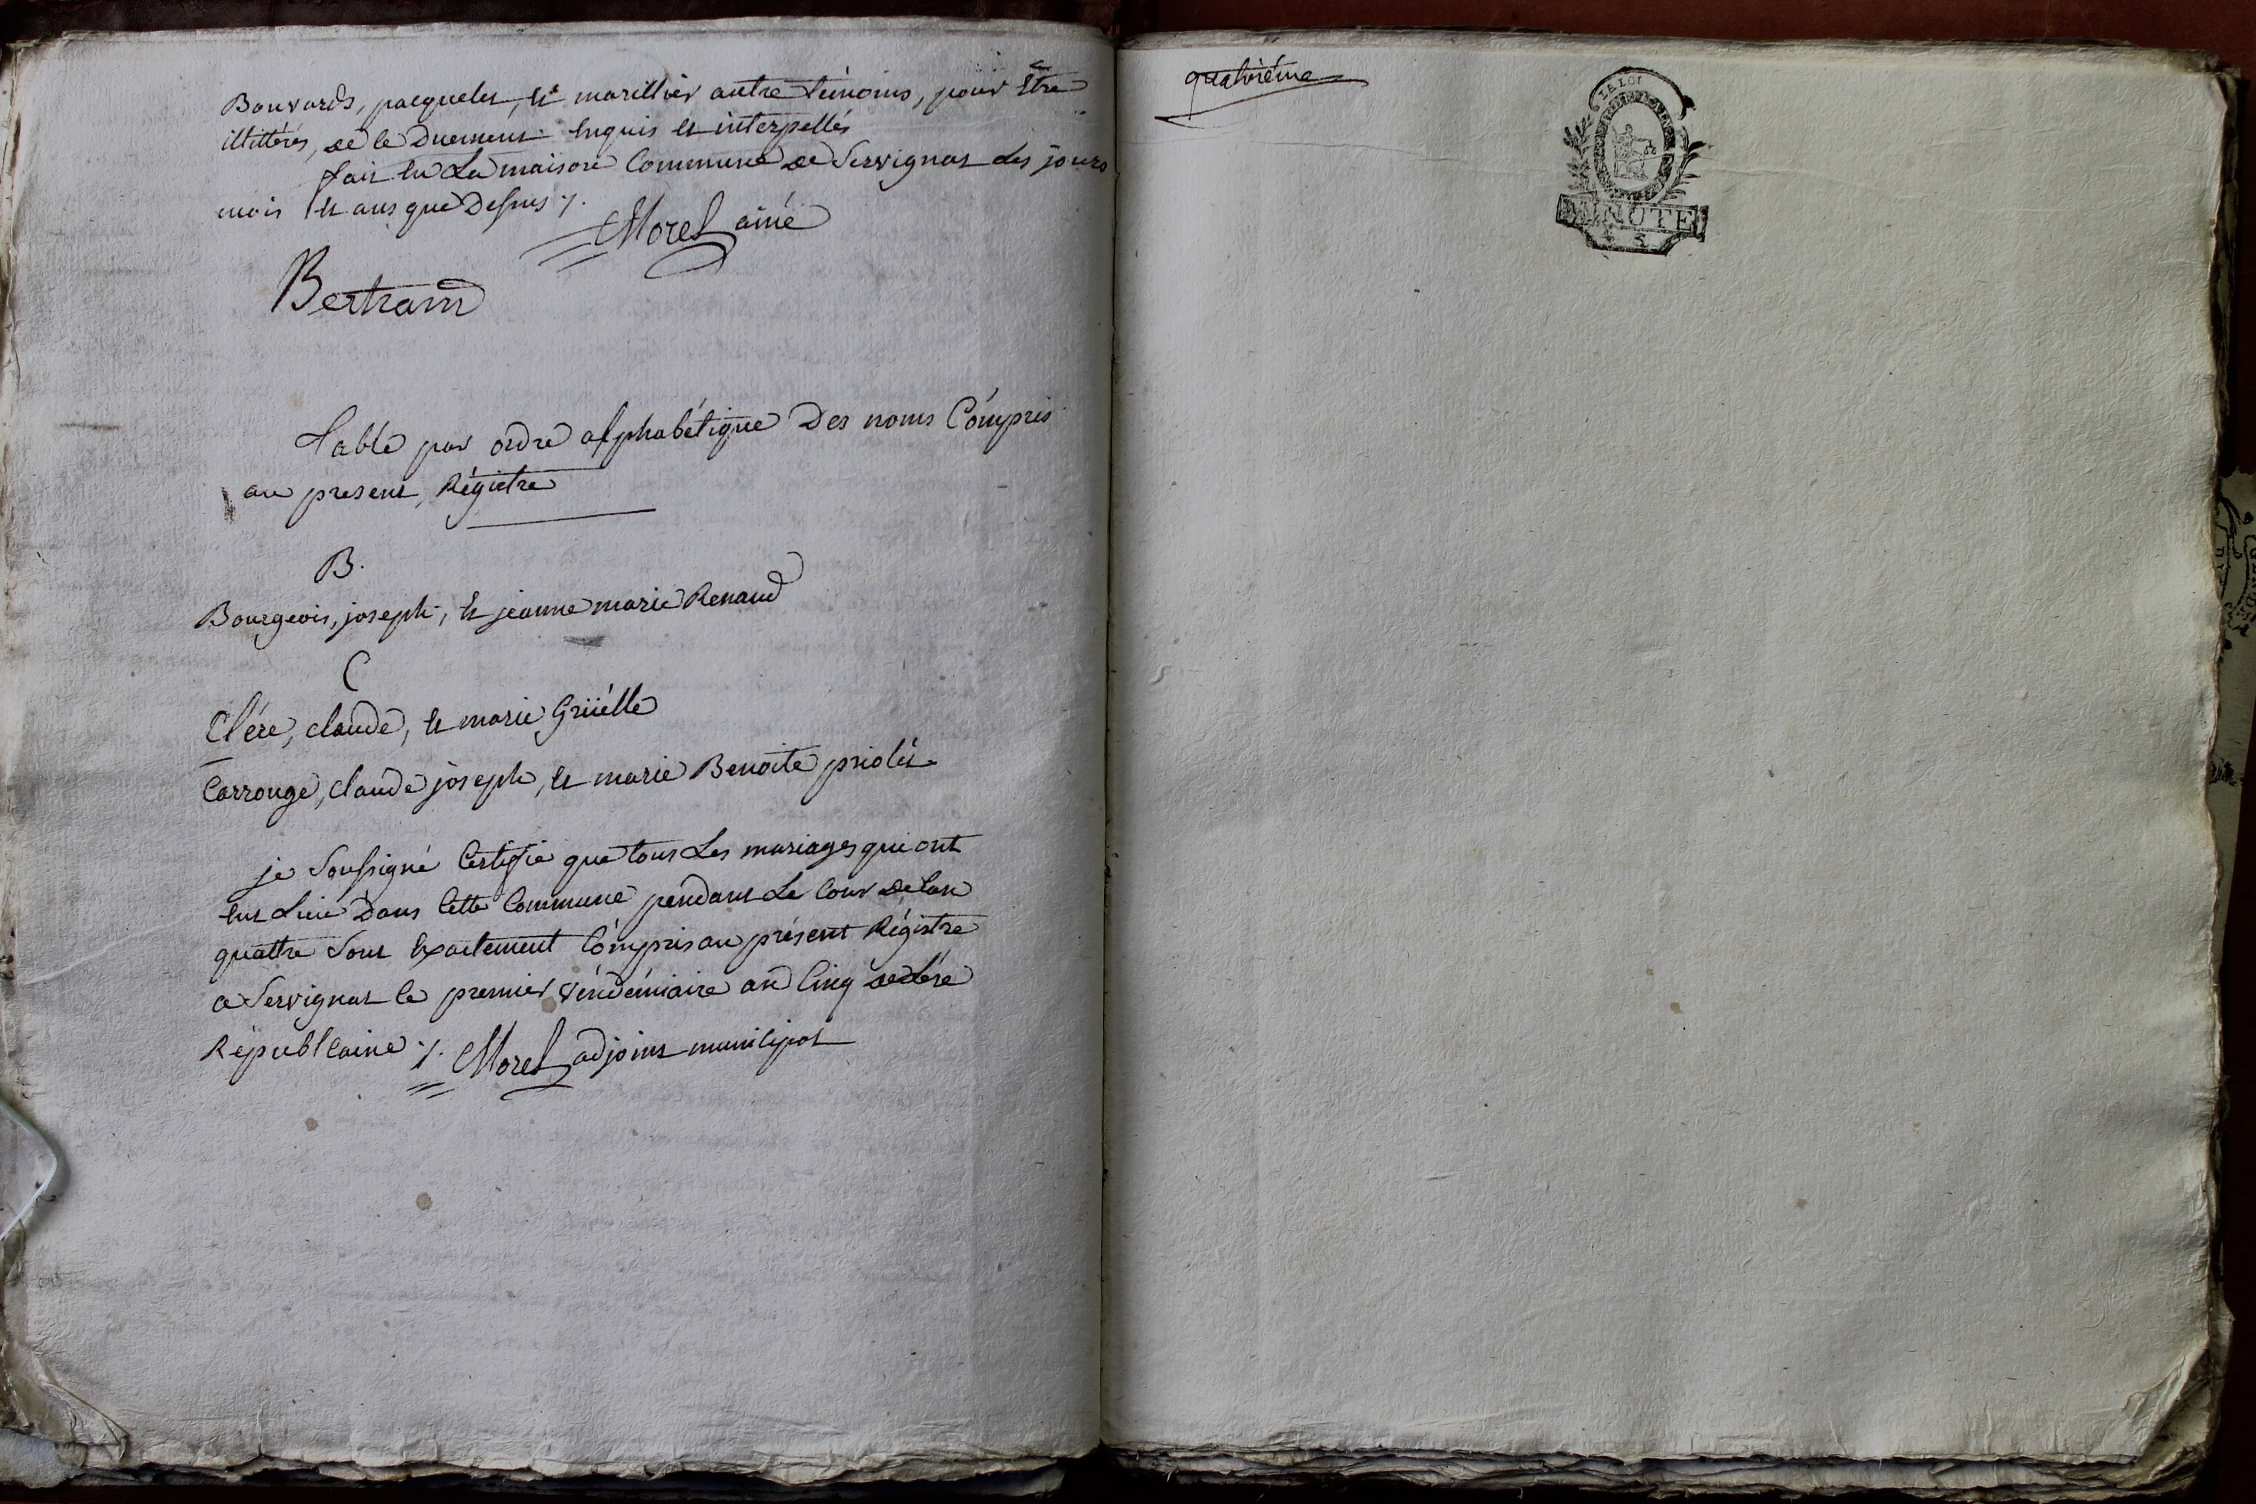 Bouvards, pacquelet, et marillier autre témoins, pour être
illittérés, de le Duement Enquis et interpellés
fait en La maison Commune de Servignat Les jours
mois et ans que Dessus ./.
Morel ainé
Bertrand
Table par ordre alphabétique Des noms Cómpris
au present, Régistre
B.
Bourgeois, joseph, et jeanne marie Renaud
C
Clére, claude, et marie Grüélle
Carrouge, claude joseph, et marie Benoite priolet
je Soussigné Certifie que tous Les mariages qui ont
Eut Lieu Dans Cette Commune pendant Le Cour de Lan
quattre Sont Exactement Cómpris au présent Régistre
a Servignat le premier Véndémiaire an Cinq de Lére
Républicaine ./. Morel adjoint municipal
quatriéme
LA LOI
MINUTE